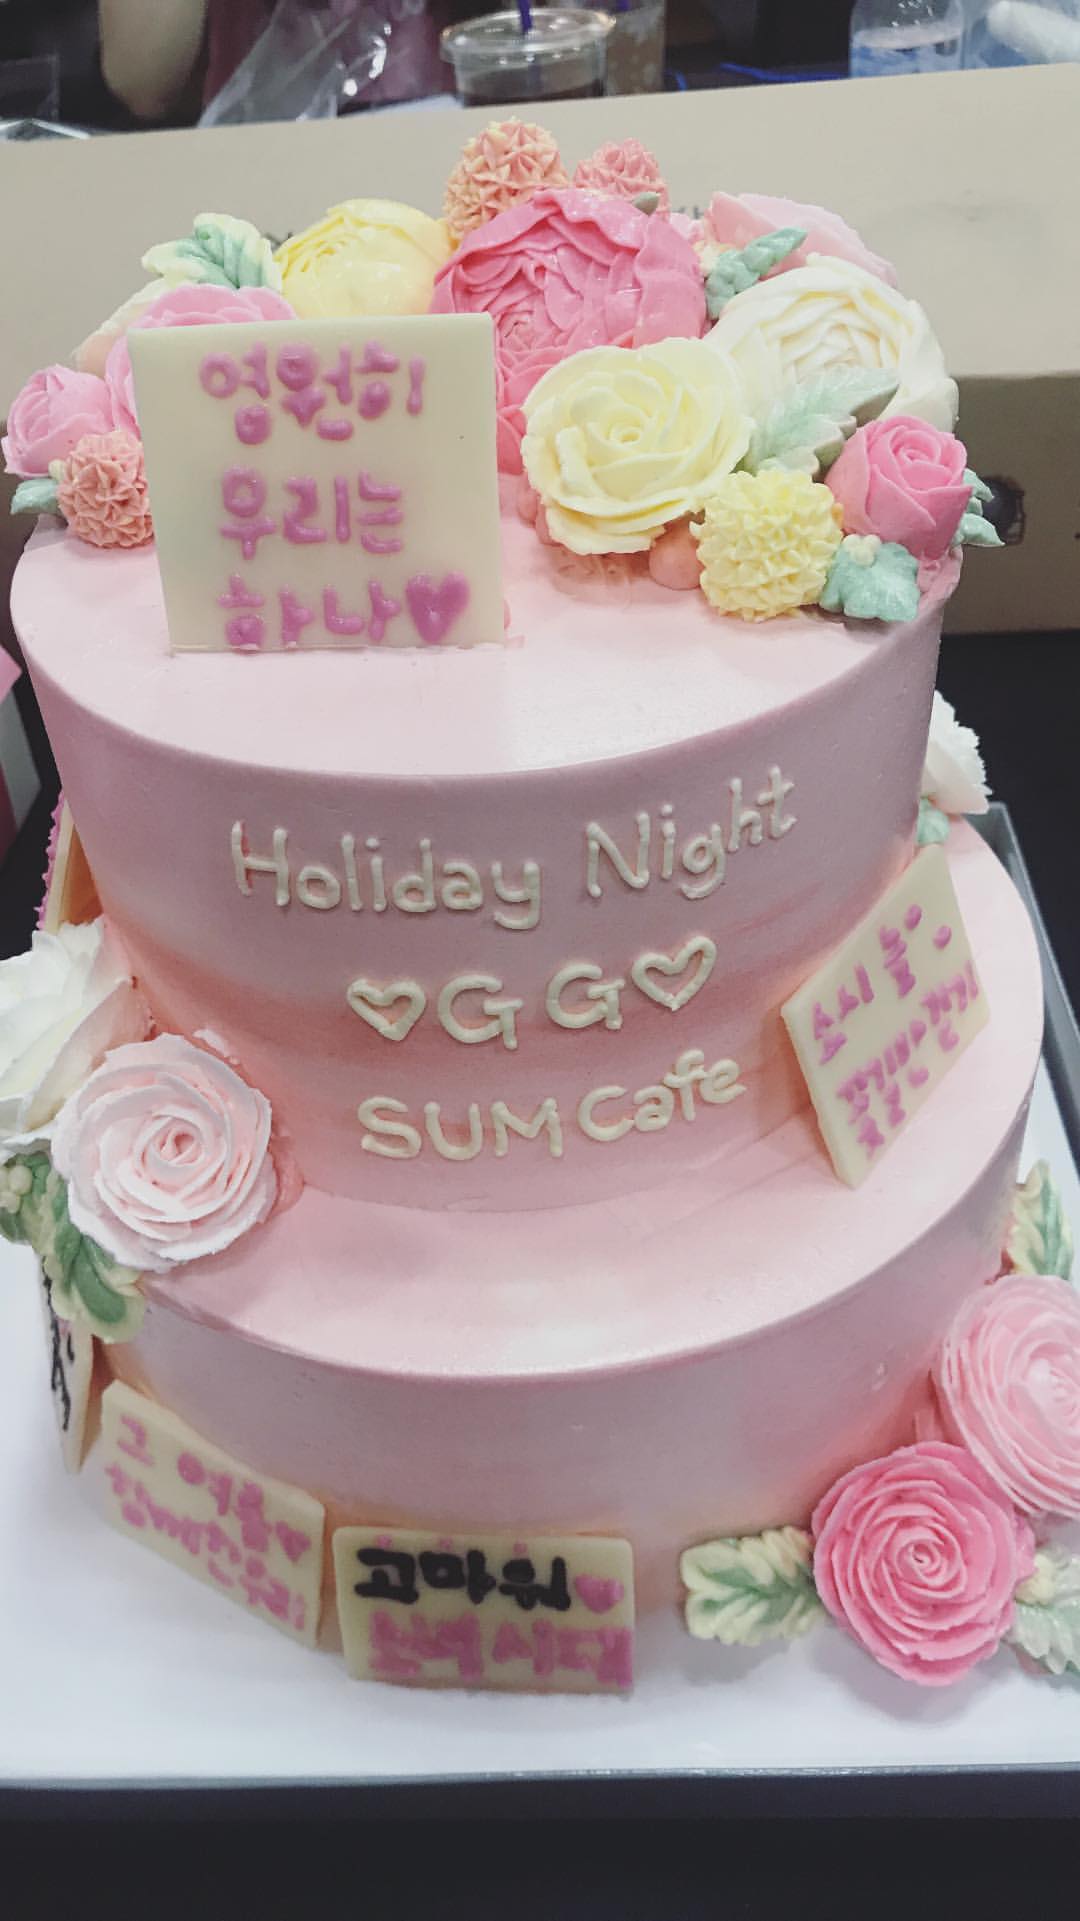 영원히
우리는
하나♥
Holiday Night
♡GG♡
SUM Cafe
소시 늘
꽃길만 걷기
그 여름♥
함께한 우리
고마워♥
소녀시대